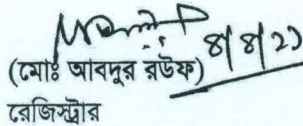 ৪/৪/২১
(মোঃ আবদুর রউফ)
রেজিস্ট্রার